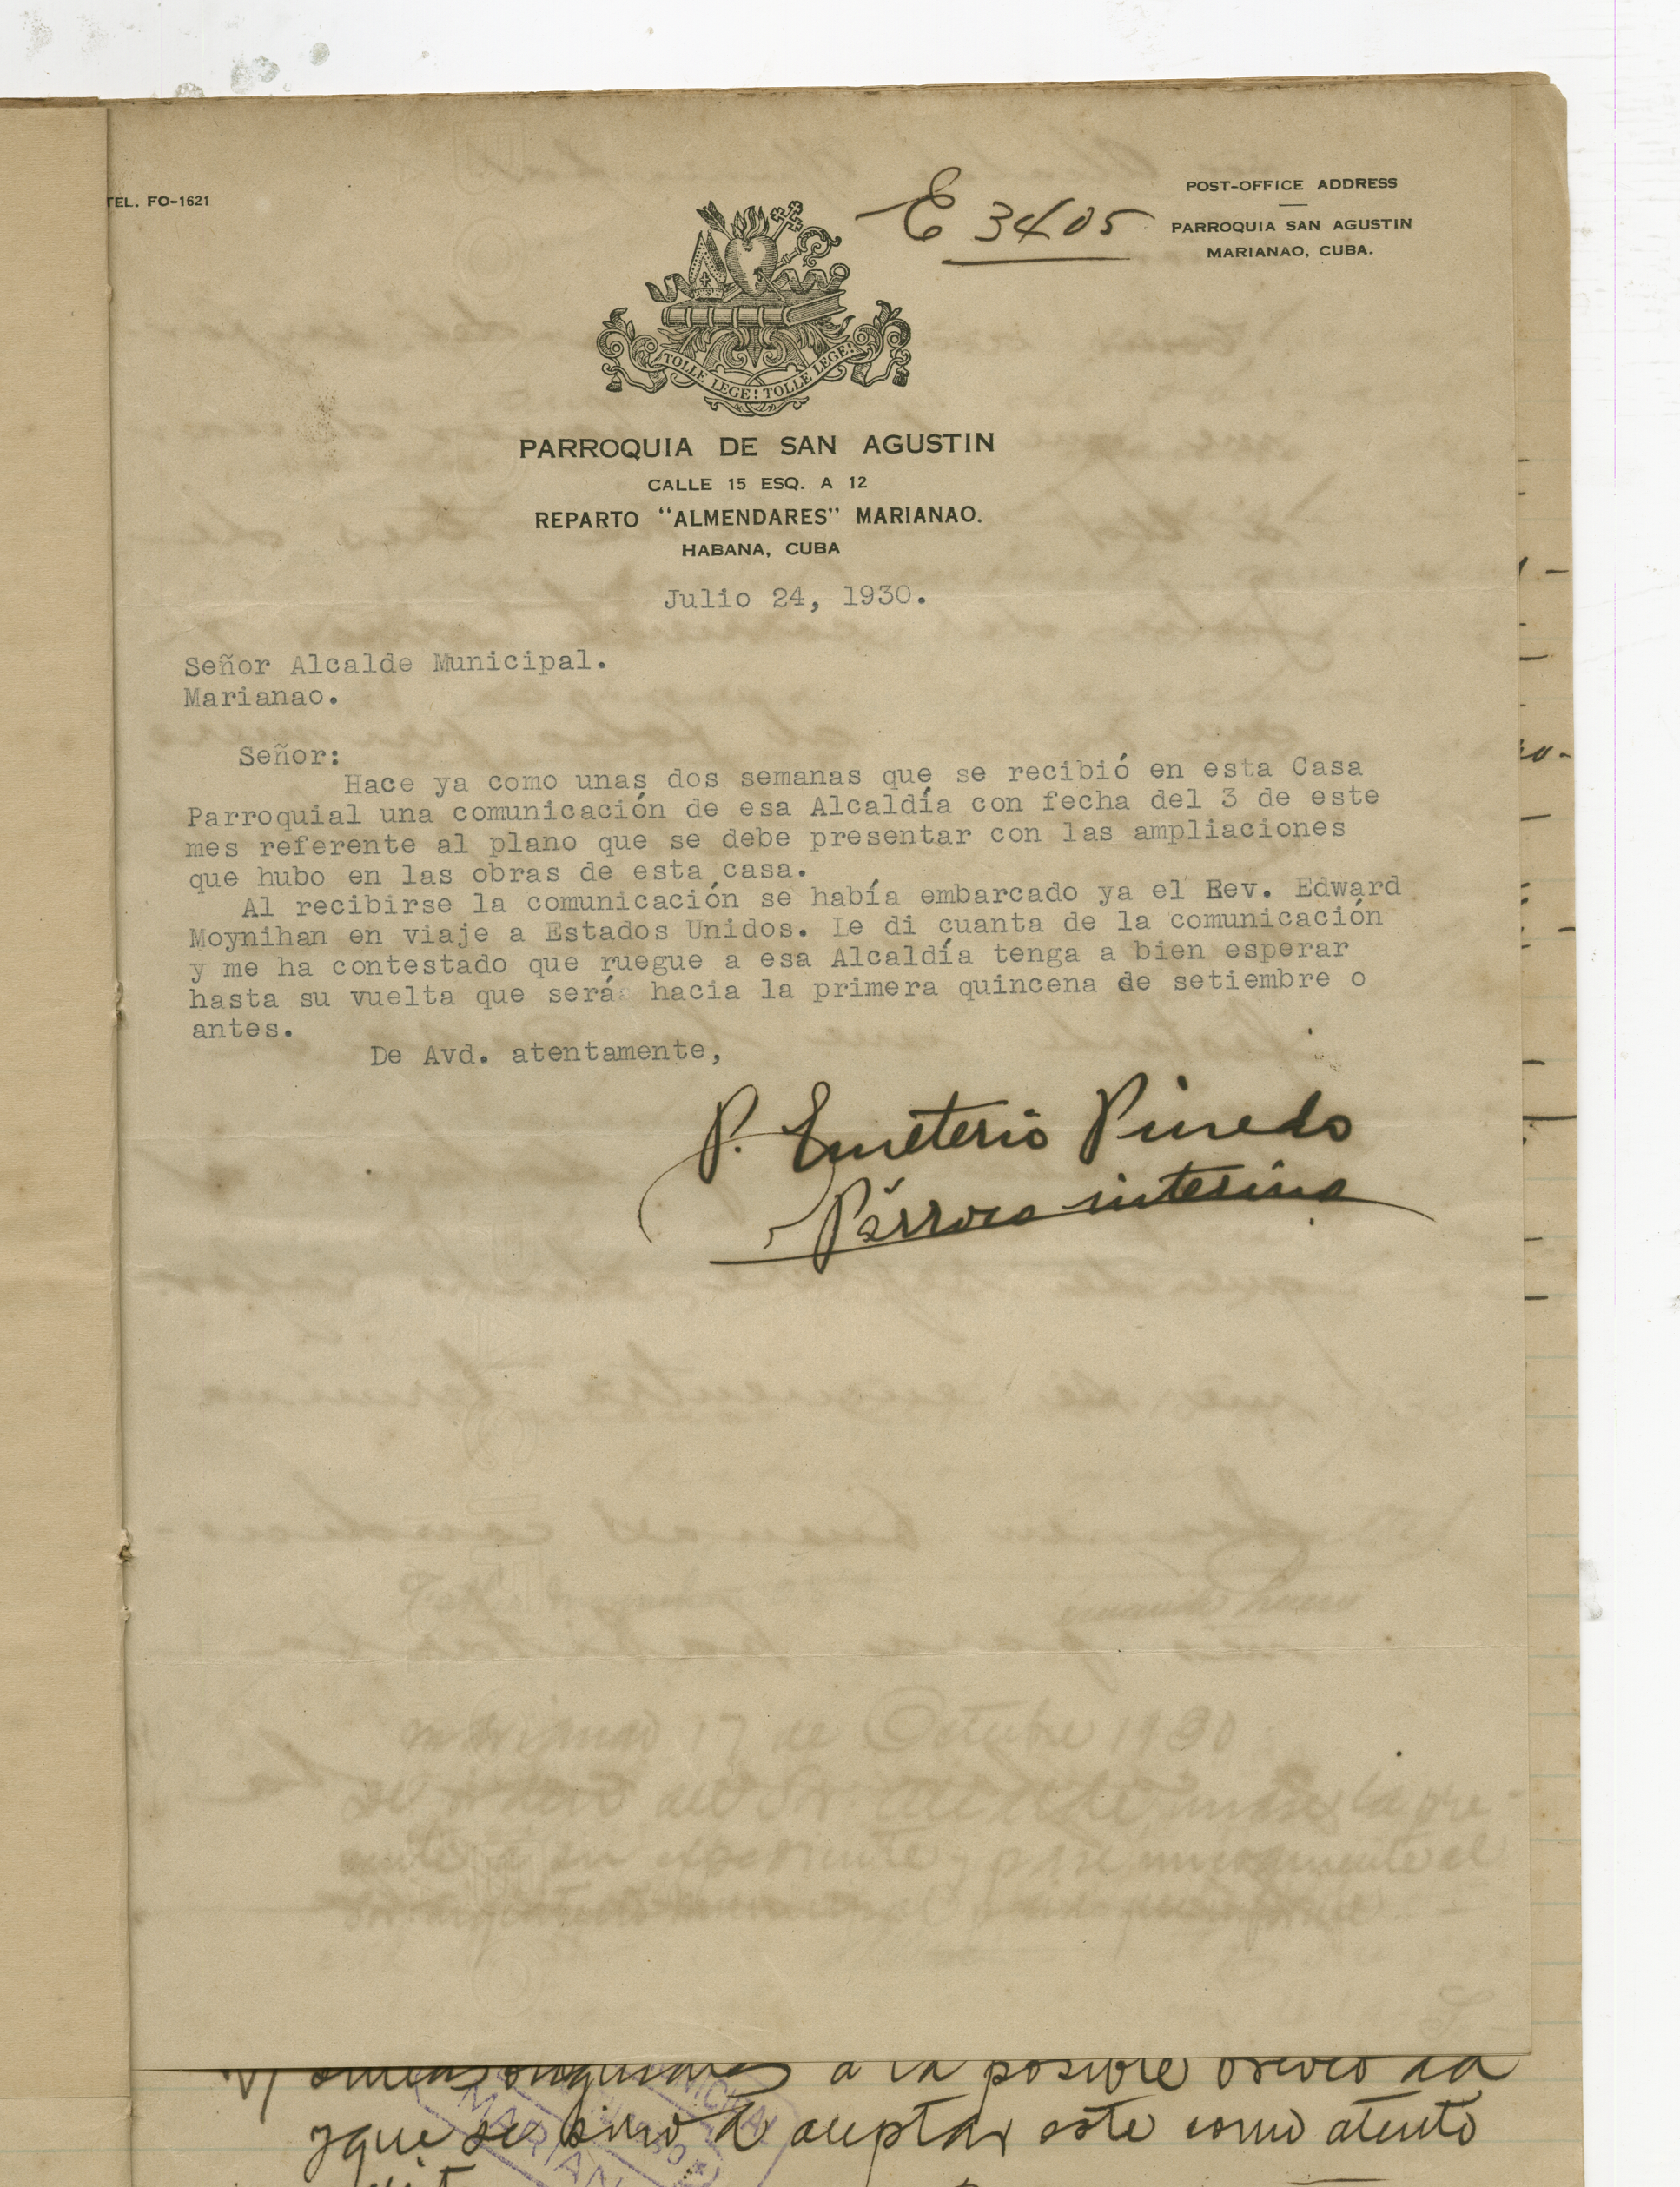 TEL. FO-1621
E 3405
POST-OFFICE ADDRESS
PARROQUIA SAN AGUSTIN
MARIANAO, CUBA.
TOLLE LEGE! TOLLE LEGE!
PARROQUIA DE SAN AGUSTIN
CALLE 15 ESQ. A 12
REPARTO "ALMENDARES" MARIANAO.
HABANA, CUBA
Julio 24, 1930.
Señor Alcalde Municipal.
Marianao.
Señor:
Hace ya como unas dos semanas que se recibió en esta Casa
Parroquial una comunicación de esa Alcaldía con fecha del 3 de este
mes referente al plano que se debe presentar con las ampliaciones
que hubo en las obras de esta casa.
Al recibirse la comunicación se había embarcado ya el Rev. Edward
Moynihan en viaje a Estados Unidos. Le di cuanta de la comunicación
y me ha contestado que ruegue a esa Alcaldía tenga a bien esperar
hasta su vuelta que será hacia la primera quincena de setiembre o
antes.
De Avd. atentamente,
P. Emeterio Pinedo
Párroco interino
Marianao 17 de Octubre 1930
a la posible
y que se sirva aceptar este como atento
MARIAN